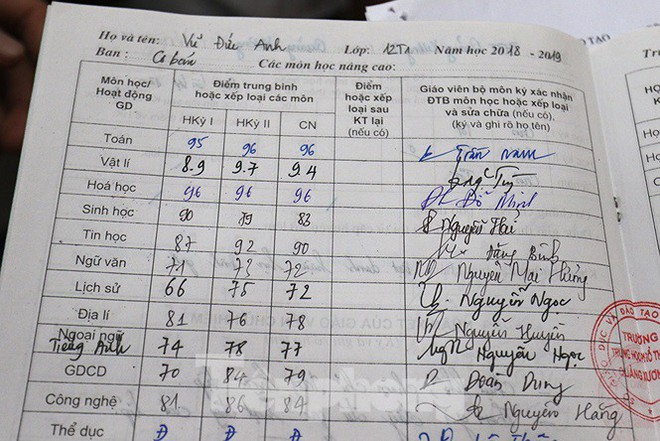 Họ và tên: Vũ Đức Anh Lớp: 12T1 Năm học 2018 - 2019
Ban: Cơ bản Các môn học nâng cao:
Môn học/ Hoạt động GD
Điểm trung bình hoặc xếp loại các môn
HKỳ I HKỳ II CN
Điểm hoặc xếp loại sau KT lại (nếu có)
Giáo viên bộ môn ký xác nhận ĐTB môn học hoặc xếp loại và sửa chữa (nếu có). (ký và ghi rõ họ tên)
Toán 95 96 96 Trần Nam
Vật lí 8.9 9.7 9.4
Hoá học 96 96 96 Đỗ Minh
Sinh học 90 79 83 Nguyễn Hải
Tin học 87 92 90 Đặng Bình
Ngữ văn 71 73 72 Nguyễn Mai Hưng
Lịch sử 66 75 72 Nguyễn Ngọc
Địa lí 81 76 78 Nguyễn Huyền
Ngoại ngữ
Tiếng Anh 74 78 77 Nguyễn Ngọc
GDCD 70 84 79 Đoàn Dung
Công nghệ 81 86 84 Nguyễn Hằng
Thể dục Đ Đ Đ
TRƯỜNG
TRUNG HỌC PHỔ TH
QUẢNG XƯƠNG